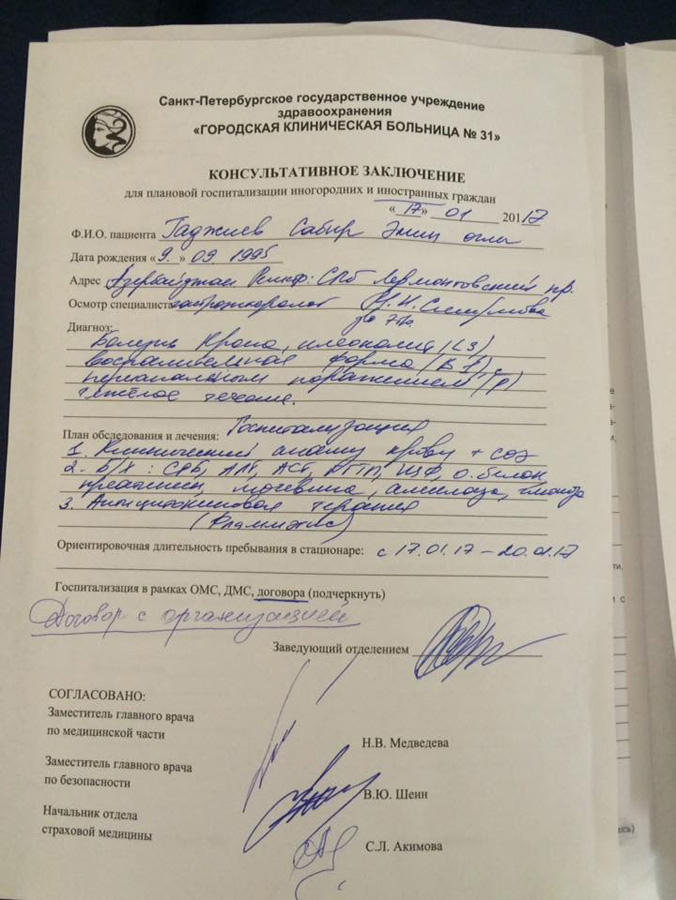 Санкт-Петербургское государственное учреждение
здравоохранения
«ГОРОДСКАЯ КЛИНИЧЕСКАЯ БОЛЬНИЦА № 31»
КОНСУЛЬТАТИВНОЕ ЗАКЛЮЧЕНИЕ
для плановой госпитализации иногородних и иностранных граждан
«17» 01 2017
Ф.И.О. пациента Гаджиев Сабир Эмин оглы
Дата рождения «9.» 09 1995
Адрес Азербайджан СПб Лермонтовский пр.
Осмотр специалиста
Диагноз:
Болезнь Крона, илеоколит (L3)
воспалительная форма (B1), с
перианальным поражением (p)
тяжёлое течение.
План обследования и лечения: Госпитализация
1. Клинический анализ крови + СОЭ
2. Б/Х: СРБ, АЛТ, АСТ, ГГТП, ЩФ, о.белок,
креатинин, мочевина, амилаза, глюкоза
3. Антицитокиновая терапия
(Фламмэгис)
Ориентировочная длительность пребывания в стационаре: с 17.01.17 – 20.01.17
Госпитализация в рамках ОМС, ДМС, договора (подчеркнуть)
Договор с организацией
Заведующий отделением
СОГЛАСОВАНО:
Заместитель главного врача
по медицинской части
Н.В. Медведева
Заместитель главного врача
по безопасности
В.Ю. Шеин
Начальник отдела
страховой медицины
С.Л. Акимова